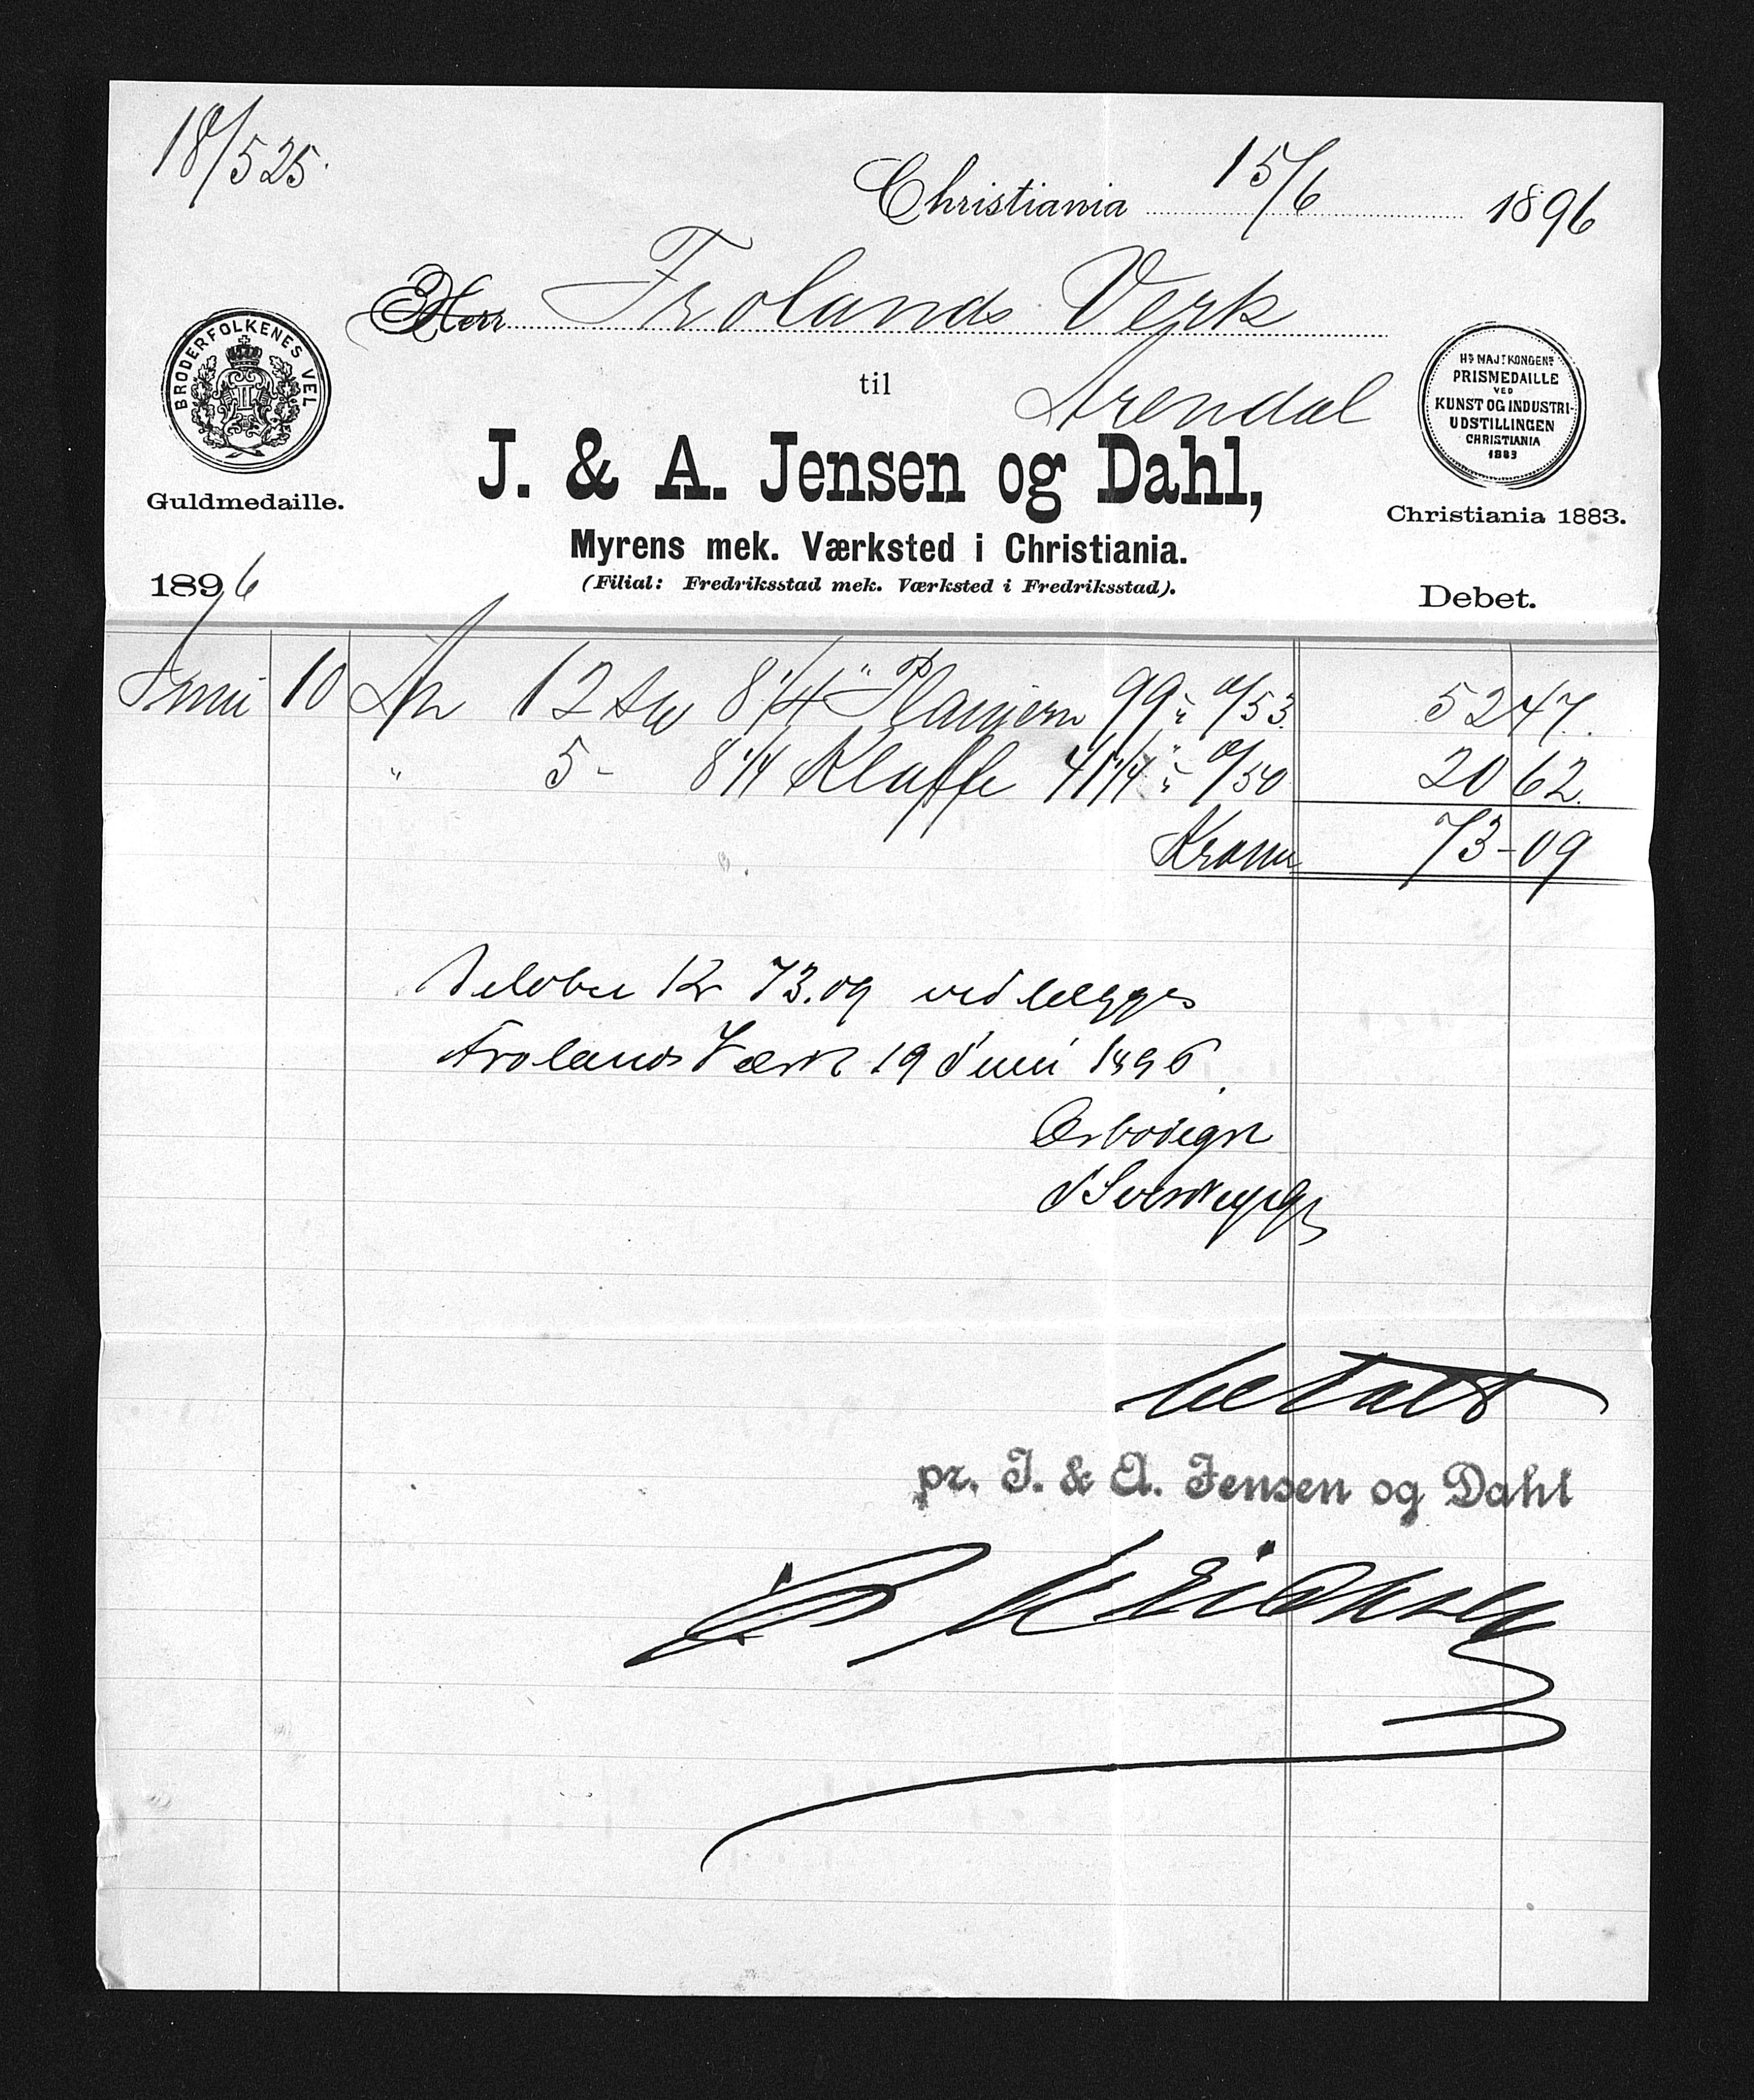 18/525.
Christiania 15/6 1896
Herr Frolands Verk
til Arendal
BRODERFOLKENES VEL
Guldmedaille.
Hs MAJt KONGENS
PRISMEDAILLE
VED
KUNST OG INDUSTRI-
UDSTILLINGEN
CHRISTIANIA
1883
Christiania 1883.
J. & A. Jensen og Dahl,
Myrens mek. Værksted i Christiania.
(Filial: Fredriksstad mek. Værksted i Fredriksstad).
1896 Debet.
Juni 10 An 12 8 1/4" 99 " a/53 52 47.
" 5 - 8 1/4 Kluffe 41 1/4 " a/50 20 62.
Kroner 73-09
Beløbet Kr 73.09 vedlægges
Frolands Værk 19 Juni 1896.
Ærbødigst
betalt
pr. J. & A. Jensen og Dahl